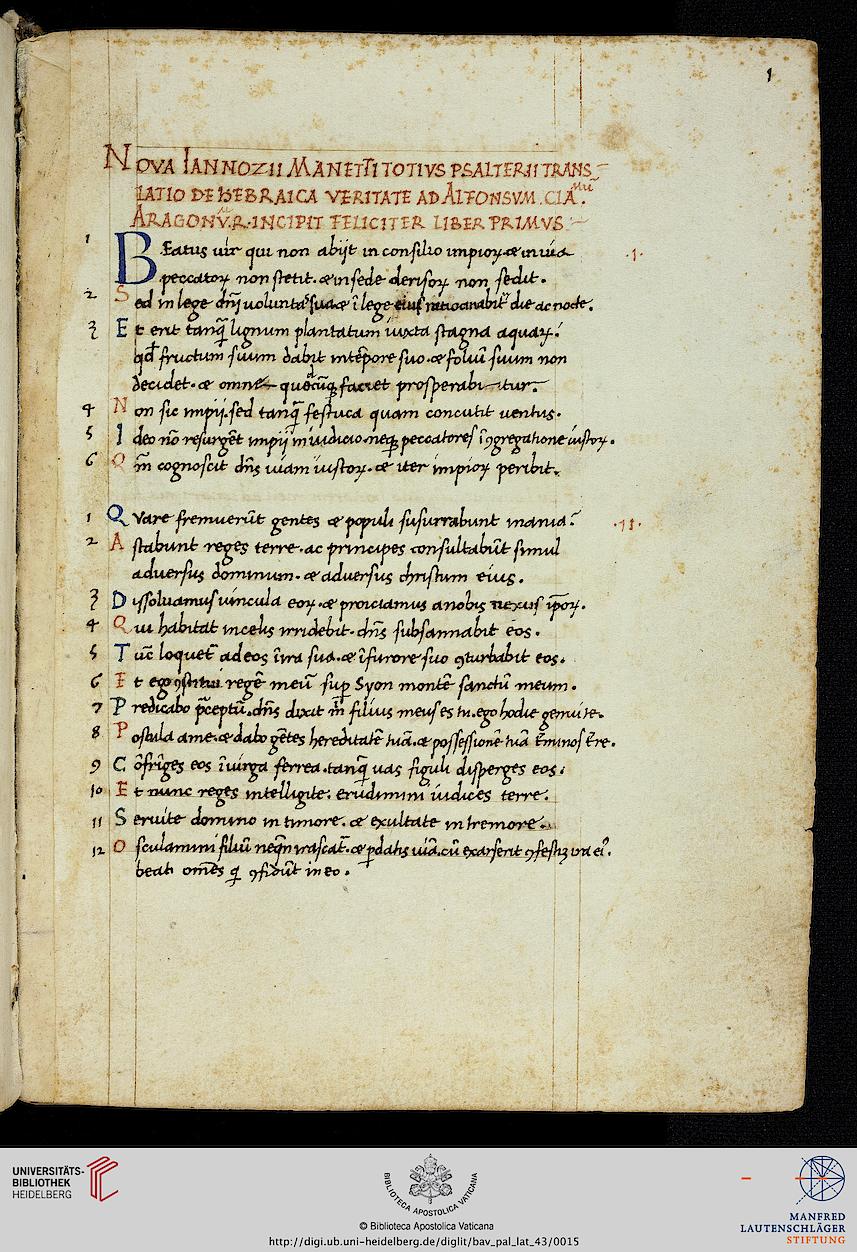 1
NOVA IANNOZII MANETTI TOTIVS PSALTERII TRANS-
LATIO DE HEBRAICA VERITATE AD ALFONSVM. CLA.mũ
ARAGONŨ.R.INCIPIT FELICITER LIBER PRIMVS
1 BEatus uir qui non abijt in consilio impioꝝ æ in uia .1.
peccatoꝝ non stetit. æ in sede derisoꝝ non sedit.
2 Sed in lege dñi uoluntas sua æ ĩ lege eius die ac nocte.
3 Et erit tanq̃ lignum plantatum iuxta stagna aquaꝝ:
qd̃ fructum suum dabit in tẽpore suo. æ foliũ suum non
decidet. æ omne faciet prosperabitur.
4 Non sic impij. sed tanq̃ festuca quam concutit uentus.
5 Ideo nõ resurgẽt impij in iudicio. neqꝫ peccatores ĩ ꝯgregatione iustoꝝ.
6 Qm̃ cognoscit dñs uiam iustoꝝ. æ iter impioꝝ peribit.
1 Quare fremuerũt gentes æ populi susurrabunt inania? .11.
2 Astabunt reges terre. ac principes consultabũt simul
adversus dominum. æ adversus christum eius.
3 Dissoluamus uincula eoꝝ. æ proiciamus a nobis nexus ip̃oꝝ.
4 Qui habitat in celis irridebit. dñs subsannabit eos.
5 Tũc loquet̃ ad eos ĩ ira sua. æ ĩ furore suo ꝯturbabit eos.
6 Et ego ꝯstitui regẽ meũ sup̃ Syon montẽ sanctũ meum.
7 Predicabo p̃ceptũ. dñs dixit m̃ filius meus es tu. ego hodie genui te.
8 Postula a me. æ dabo gẽtes hereditatẽ tuã. æ possessionẽ tuã t̃minos t̃re.
9 Cõfrĩges eos ĩ uirga ferrea. tanq̃ uas figuli disperges eos:
10 Et nunc reges intelligite. erudimini iudices terre.
11 Seruite domino in timore. æ exultate in tremore.
12 Osculamini filiũ neq̃n irascat̃. æ ꝑdatis uiã. cũ exarserit ꝯfestiꝫ ira ei9.
beati om̃es q̃ ꝯfidũt in eo.
UNIVERSITÄTS-
BIBLIOTHEK
HEIDELBERG
BIBLIOTECA APOSTOLICA VATICANA
© Biblioteca Apostolica Vaticana
http://digi.ub.uni-heidelberg.de/diglit/bav_pal_lat_43/0015
MANFRED
LAUTENSCHLÄGER
STIFTUNG